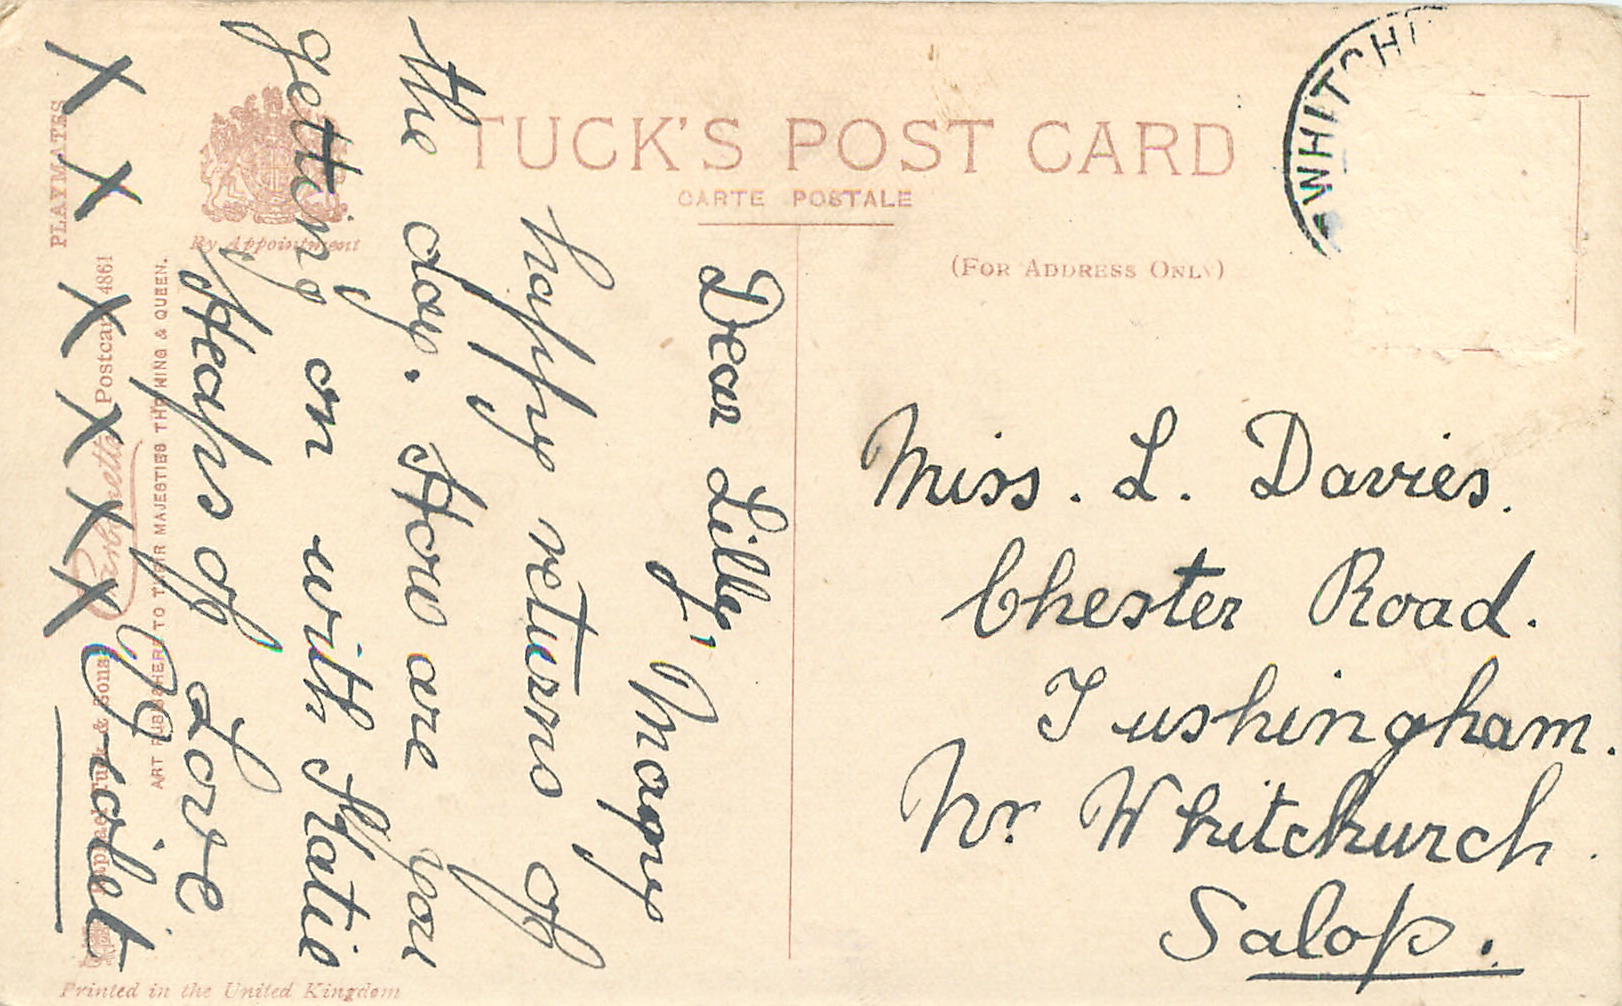 TUCK'S POST CARD
CARTE POSTALE
(FOR ADDRESS ONLY)
By Appointment
WHITCH
Dear Lilly, Many
happy returns of
the day. How are you
getting on with Katie
Heaps of Love
Violet
X X X X X X
Miss. L. Davies.
Chester Road.
Tushingham.
Nr Whitchurch.
Salop.
PLAYMATES
Postcard 4861
Raphael Tuck & Sons
ART PUBLISHERS TO THEIR MAJESTIES THE KING & QUEEN.
Printed in the United Kingdom